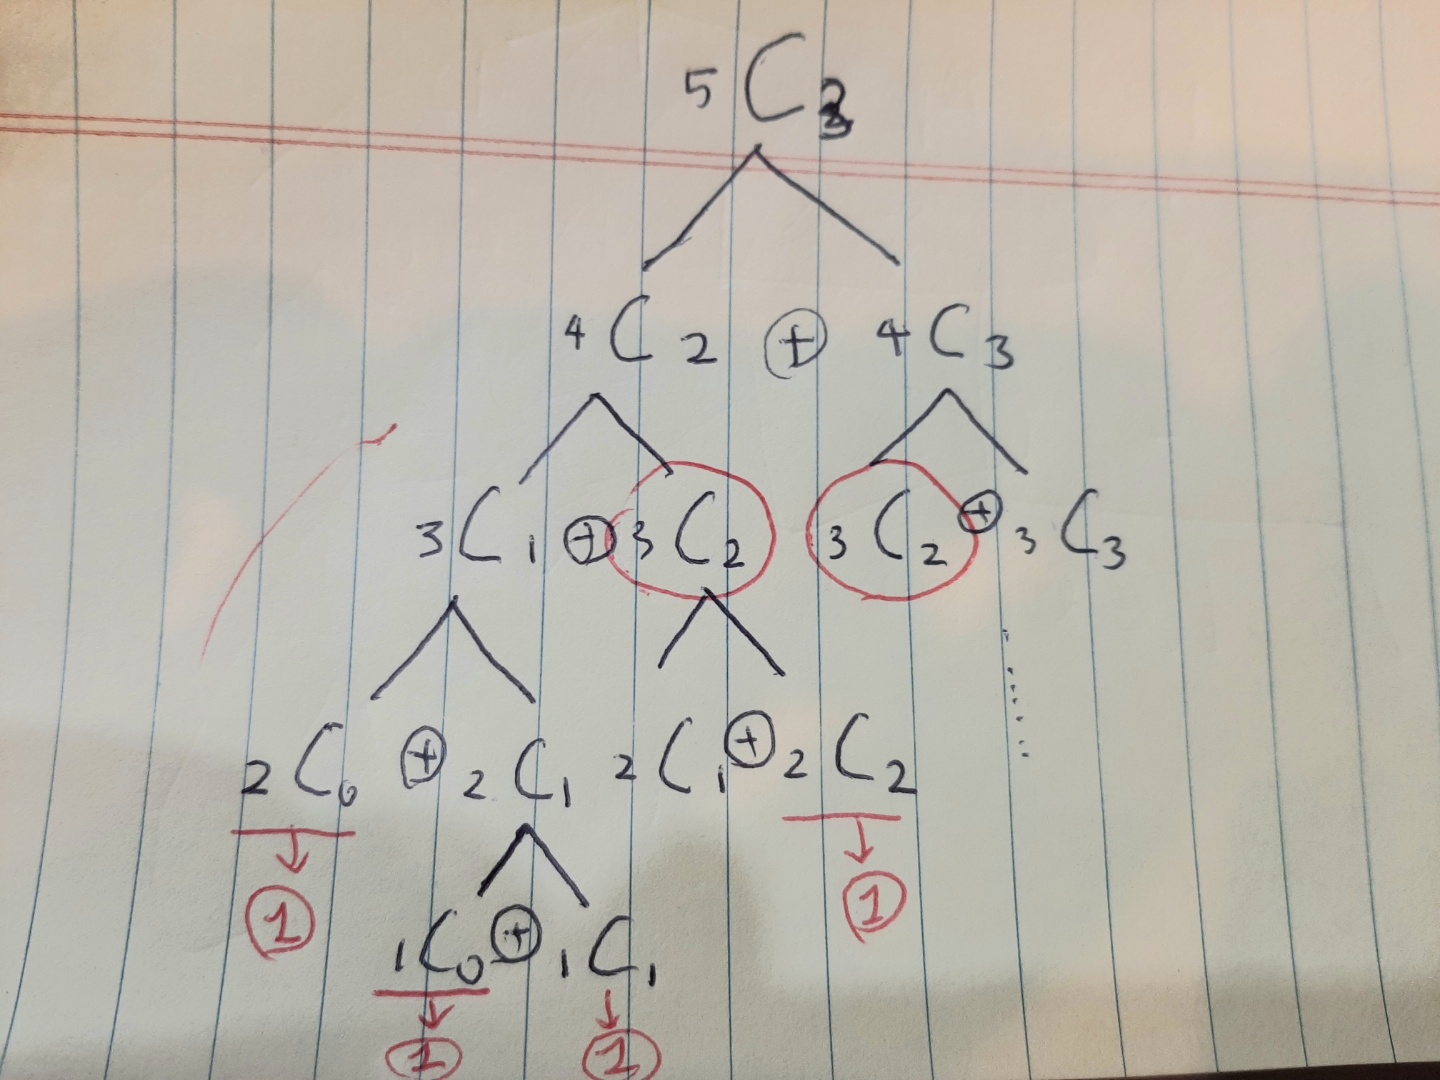 5 C 3
4 C 2 + 4 C 3
3 C 1 + 3 C 2 3 C 2 + 3 C 3
2 C 0 + 2 C 1 2 C 1 + 2 C 2
1 1
1 C 0 + 1 C 1
1 1